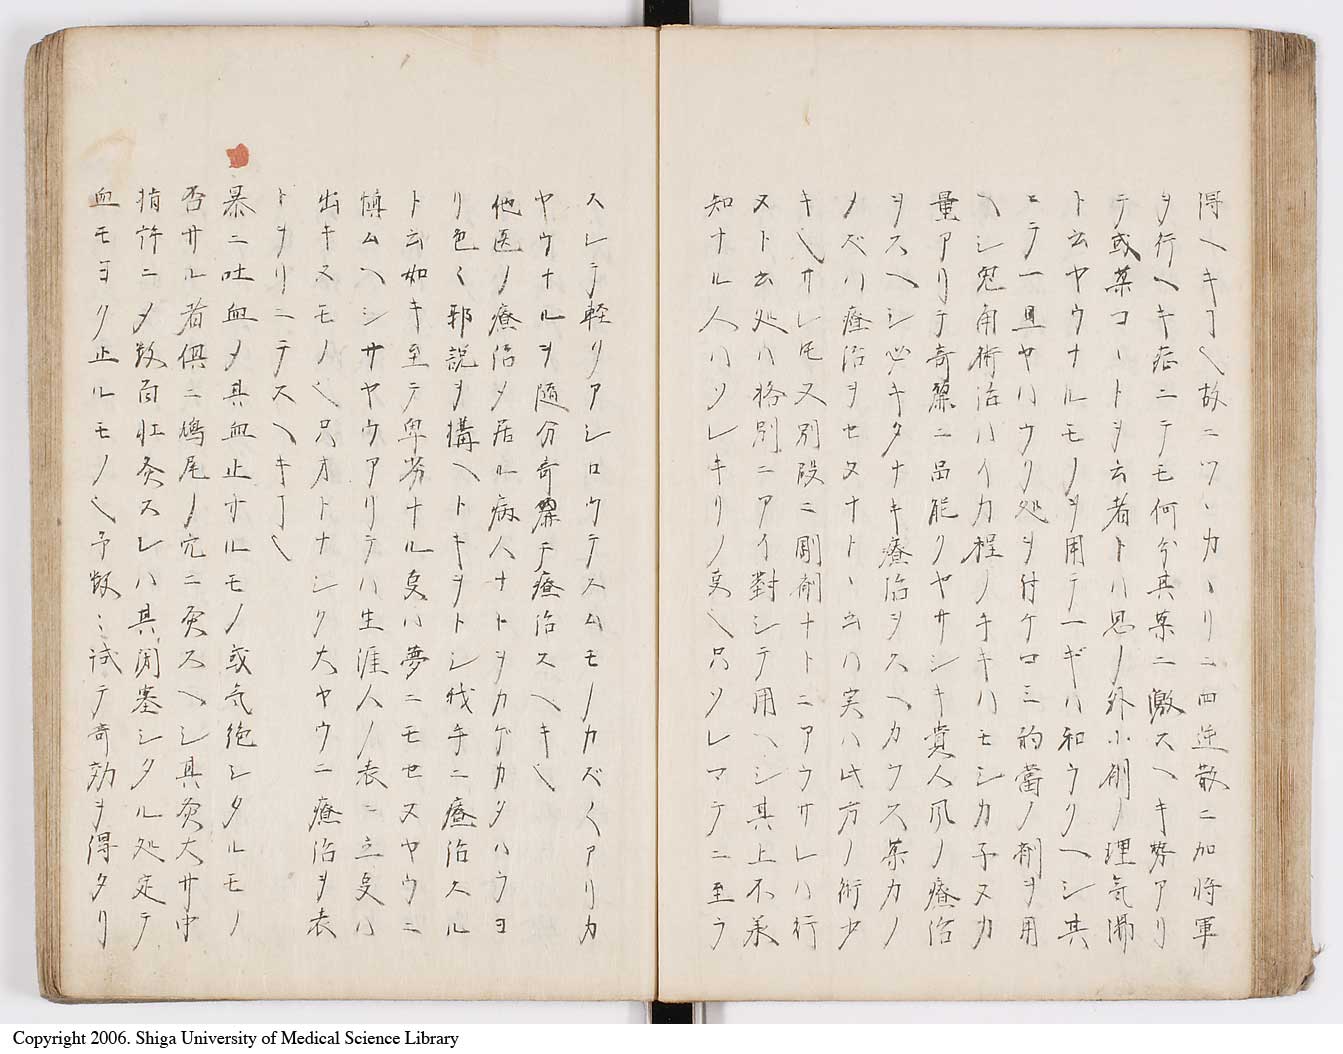 得ヘキヿ也故ニワヽカヽリニ四逆散ニ加将軍
ヲ行ヘキ症ニテモ何分其薬ニ激スヘキ勢アリ
テ或薬コヽトヲ云者トハ思ノ外小剤ノ理気沸
ト云ヤウナルモノヲ用テ一ギハ和ウクヘシ其
ニテ一旦ヤハウリ処ヲ付ケロミ的當ノ剤ヲ用
ヘシ兎角術治ハイカ程ノキキハモシカ子ヌカ
量アリテ奇麗ニ品能クヤサシキ貴人風ノ療治
ヲスヘシ必キタナキ療治ヲスヘカウス薬カノ
ノズハ療治ヲセヌナトヽ云ハ実ハ此方ノ術少
キ也サレ𪜈又別段ニ剛剤ナトニアウサレハ行
ヌト云処ハ格別ニアイ對シテ用ヘシ其上不義
知ナル人ハソレキリノ㕝也只ソレマテニ至ラ
スレテ軽リアシロウテスムモノカズ〱アリカ
ヤウナルヲ随分奇麗テ療治スヘキ也
他医ノ療治メ居ル病人ナトヲカゲカタハウヨ
リ色〻邪説ヲ構ヘトキヲトシ我手ニ療治スル
ト云如キ至テ卑劣ナル㕝ハ夢ニモセヌヤウニ
慎ムヘシサヤウアリテハ生涯人ノ表ニ立㕝ハ
出キヌモノ也只オトナシク大ヤウニ療治ヲ表
トヲリニテスヘキヿ也
暴ニ吐血メ其血止ナルモノ或気絶シタルモノ
否サル者倶ニ鳩尾ノ穴ニ灸スヘシ其灸大サ中
指許ニメ数百壮灸スレハ其閉塞シタル処定テ
血モヨク止ルモノ也予数〻試テ奇効ヲ得タリ
Copyright 2006. Shiga University of Medical Science Library